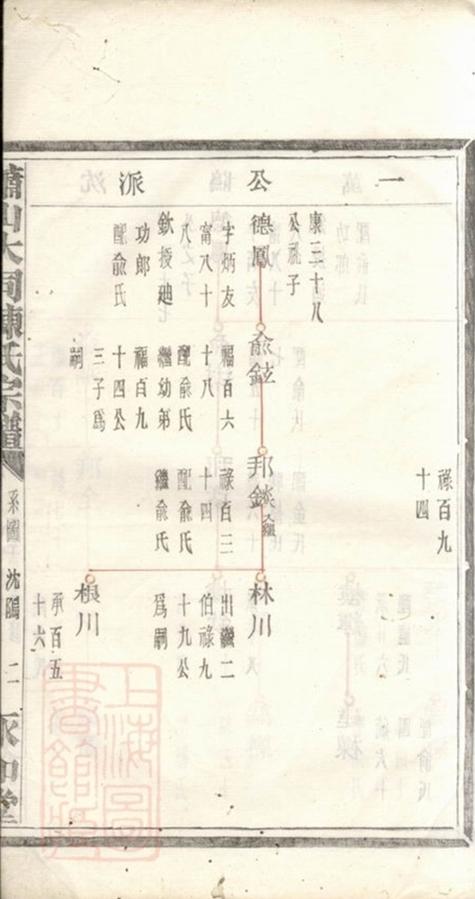 一公派
祿百九
十四
康三十八
公祝子
德鳳
字炳友
富八十
八
欽授廸
功郎
配俞氏
俞鉉
福百六
十八
配俞氏
繼幼弟
福百九
十四公
三子為
嗣
邦鐩
又繼
祿百三
十四
配俞氏
繼俞氏
林川
出繼二
伯祿九
十九公
爲嗣
根川
承百五
十六
蕭山大同陳氏宗譜
系圖 沈隝 二
永和堂
上海圖
書館藏